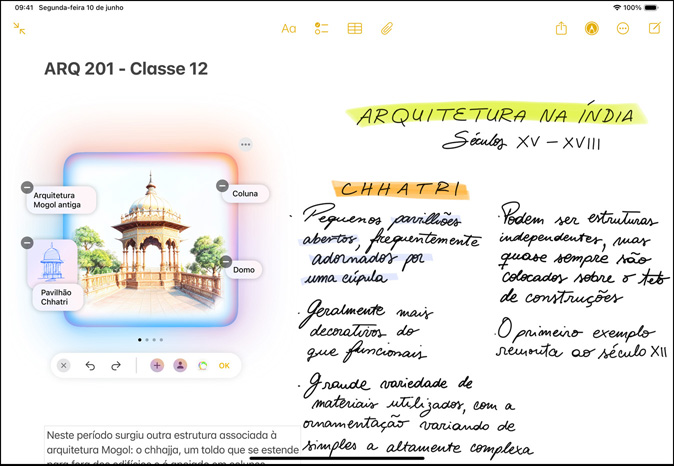 09:41 Segunda-feira 10 de junho
100%
Aa
ARQ 201 - Classe 12
Arquitetura
Mogol antiga
Coluna
Domo
Pavilhão
Chhatri
OK
Neste período surgiu outra estrutura associada à
arquitetura Mogol: o chhajja, um toldo que se estende
para fora dos edifícios e é apoiado em colunas
ARQUITETURA NA ÍNDIA
Séculos XV – XVIII
CHHATRI
· Pequenos pavilhões
abertos, frequentemente
adornados por
uma cúpula
· Geralmente mais
decorativos do
que funcionais
· Grande variedade de
materiais utilizados, com a
ornamentação variando de
simples a altamente complexa
· Podem ser estruturas
independentes, mas
quase sempre são
colocados sobre o teto
de construções
· O primeiro exemplo
remonta ao século XII